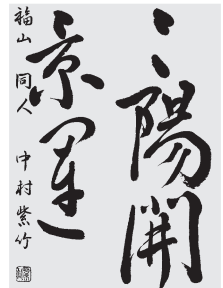 三陽開
景運
福山 同人 中村紫竹